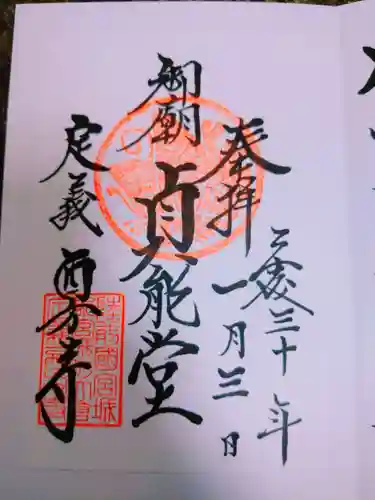 奉拝
平成三十年
一月三日
御廟
貞能堂
定義
西方寺